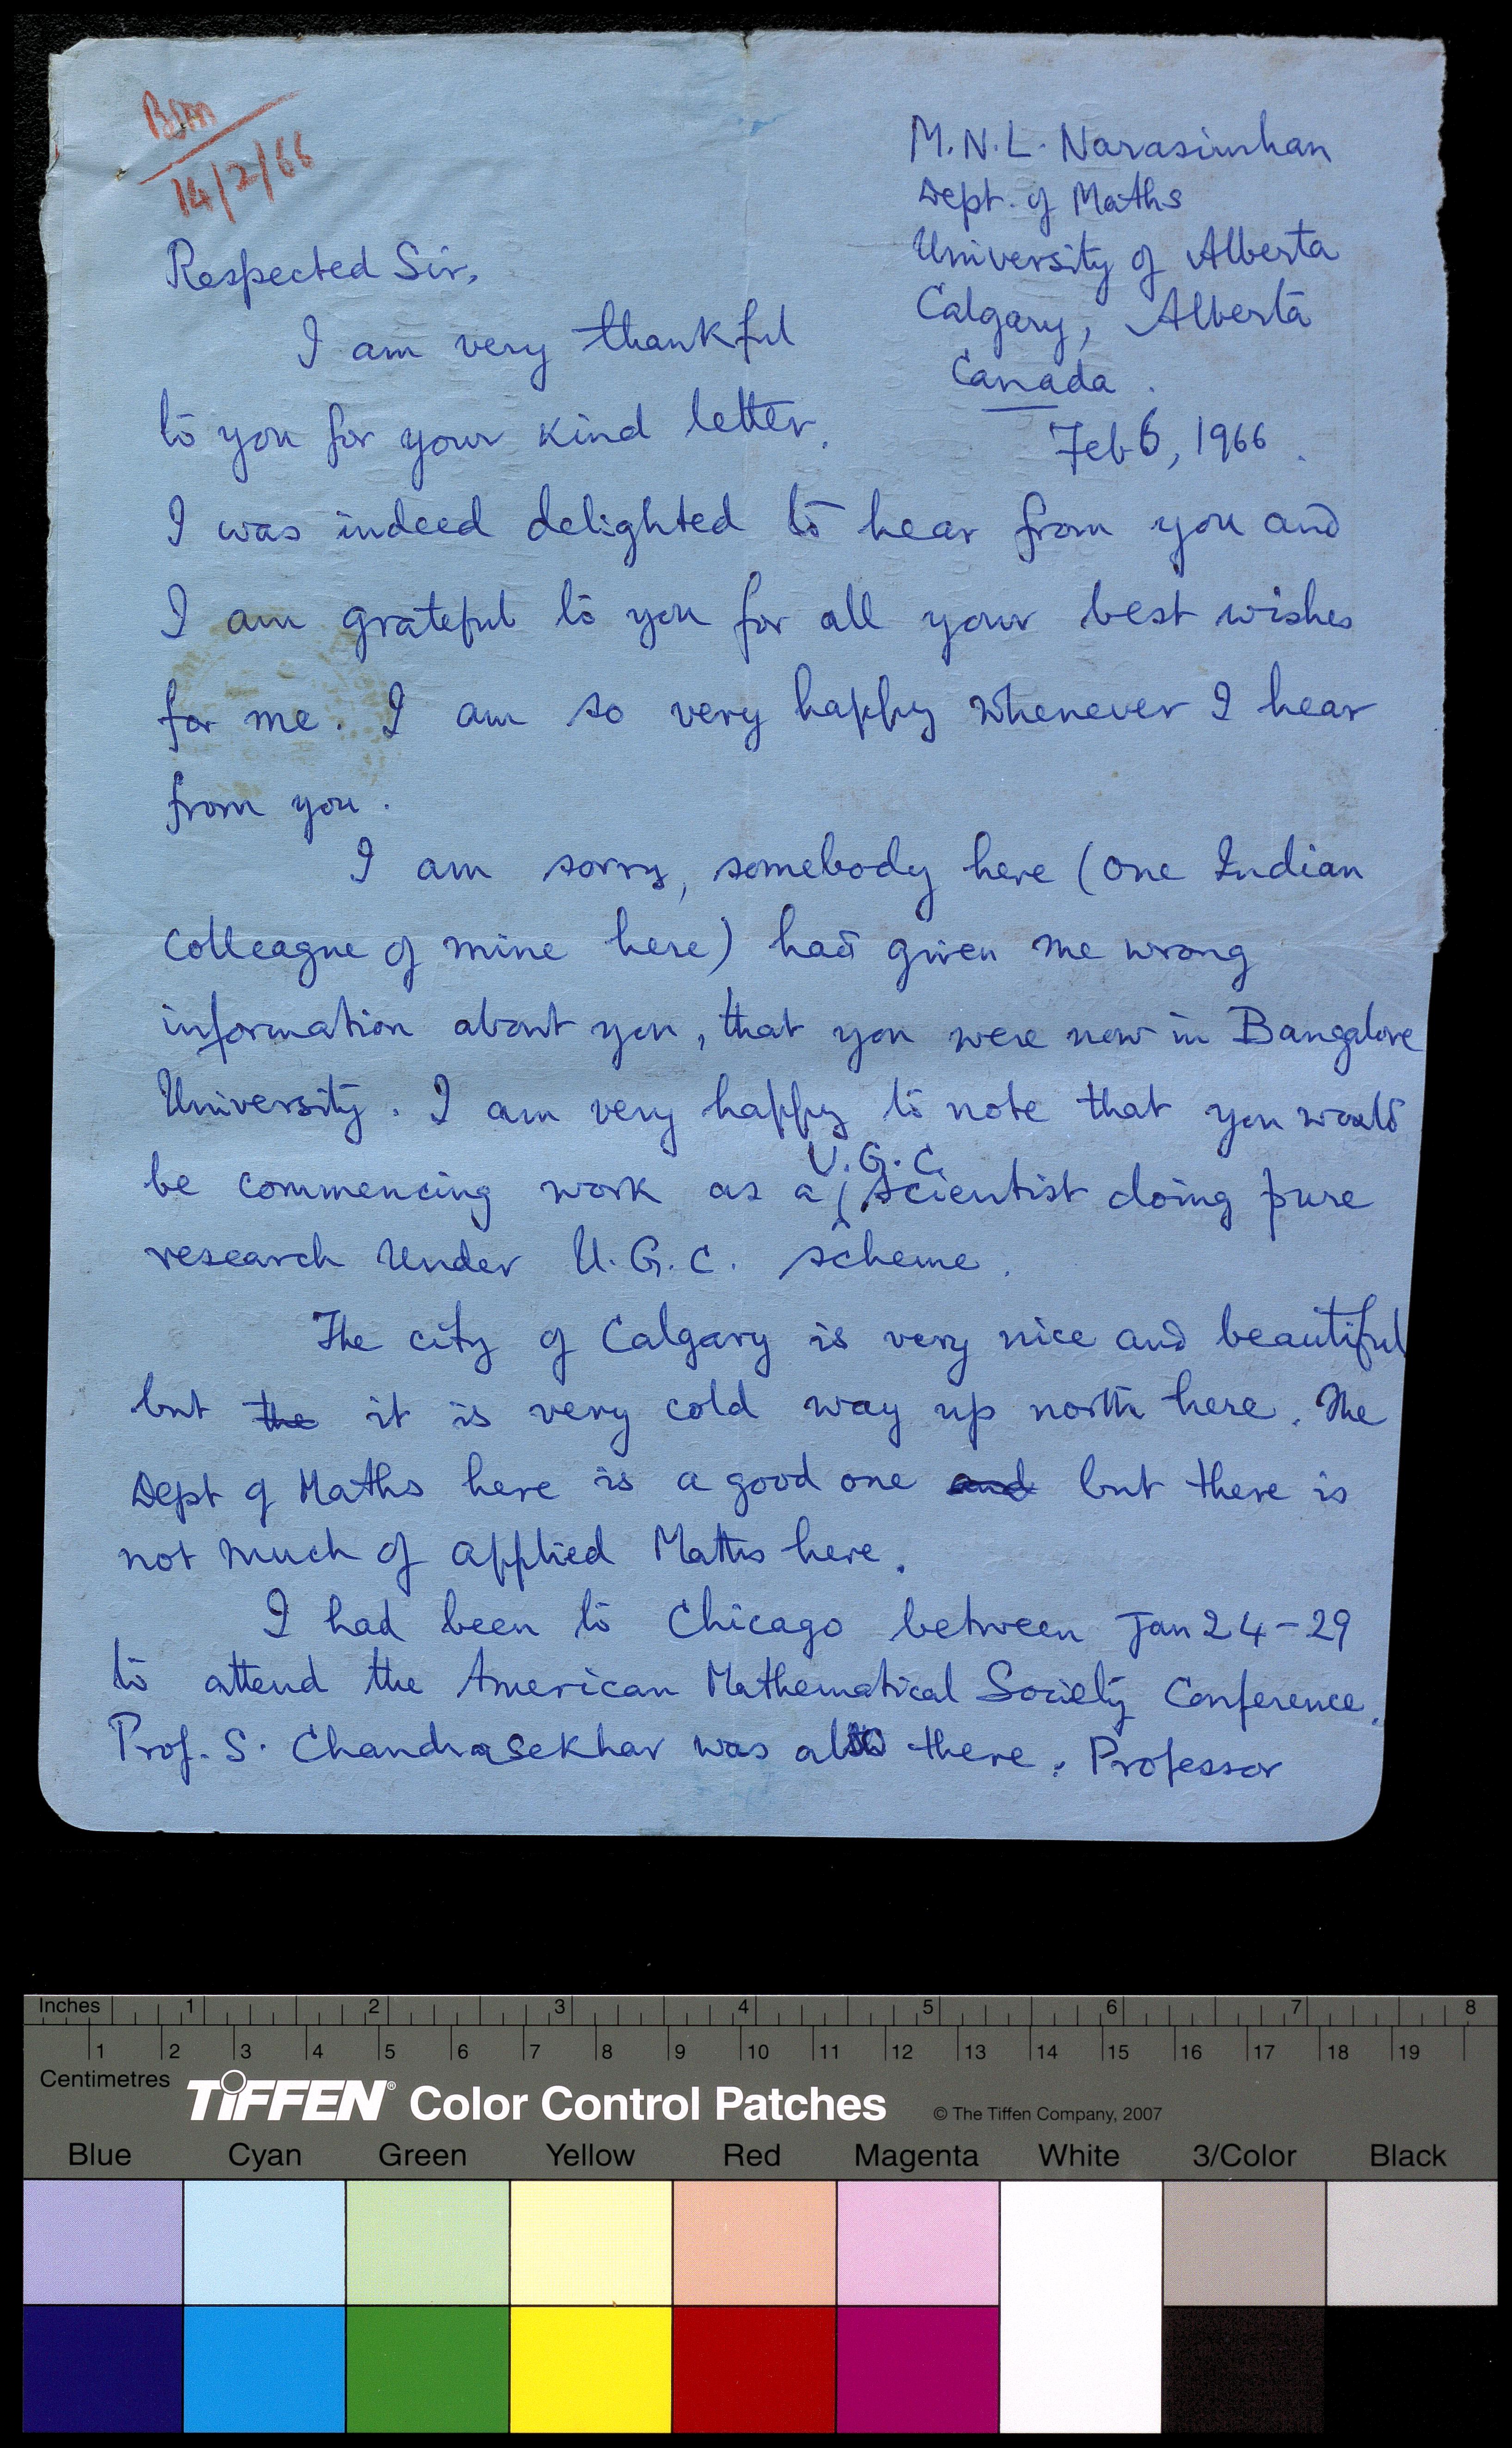 BSM
14/2/66
M. N. L. Narasimhan
Dept. of Maths
University of Alberta
Calgary, Alberta
Canada.
Feb 6, 1966.
Respected Sir,
I am very thankful
to you for your kind letter.
I was indeed delighted to hear from you and
I am grateful to you for all your best wishes
for me. I am so very happy whenever I hear
from you.
I am sorry, somebody here (one Indian
colleague of mine here) had given me wrong
information about you, that you were now in Bangalore
University. I am very happy to note that you would
U.G.C.
be commencing work as a scientist doing pure
research under U.G.C. scheme.
The city of Calgary is very nice and beautiful
but the it is very cold way up north here. The
Dept of Maths here is a good one and but there is
not much of applied Maths here.
I had been to Chicago between Jan 24-29
to attend the American Mathematical Society Conference.
Prof. S. Chandrasekhar was also there. Professor
Inches 1 2 3 4 5 6 7 8
1 2 3 4 5 6 7 8 9 10 11 12 13 14 15 16 17 18 19
Centimetres
TIFFEN® Color Control Patches © The Tiffen Company, 2007
Blue Cyan Green Yellow Red Magenta White 3/Color Black